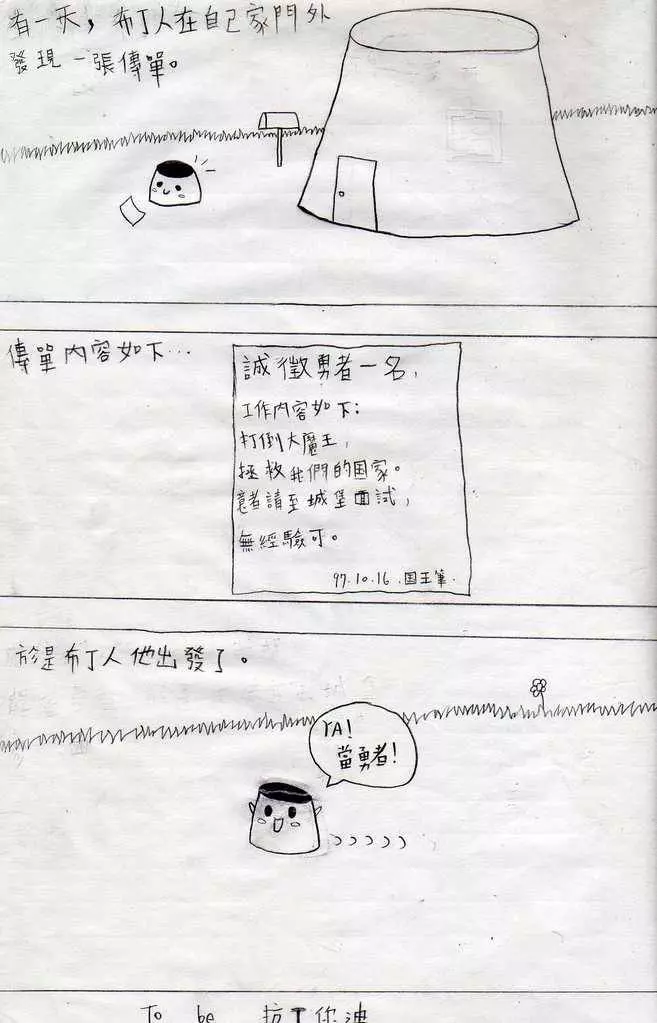 有一天，布丁人在自己家門外
發現一張傳單。
傳單內容如下…
誠徵勇者一名，
工作內容如下：
打倒大魔王，
拯救我們的国家。
意者請至城堡面試，
無經驗可。
97.10.16.国王筆.
於是布丁人他出發了。
YA!
當勇者！
To be